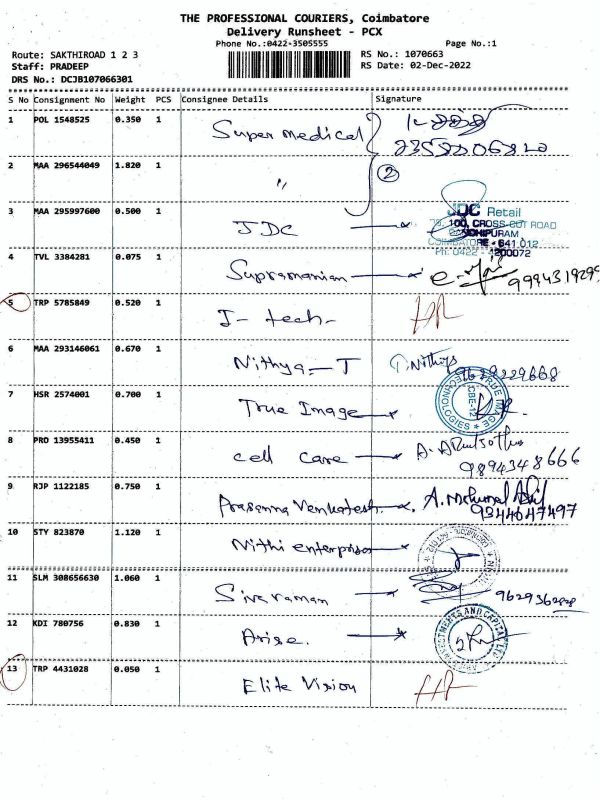 THE PROFESSIONAL COURIERS, Coimbatore
Delivery Runsheet - PCX
Phone No.:0422-3505555 Page No.:1
Route: SAKTHIROAD 1 2 3 RS No.: 1070663
Staff: PRADEEP RS Date: 02-Dec-2022
DRS No.: DCJB107066301
S No Consignment No Weight PCS Consignee Details Signature
1 POL 1548525 0.350 1 Super medical
2 MAA 296544049 1.820 1 〃 2
3 MAA 295997600 0.500 1 JDC
JDC Retail
100, CROSS-CUT ROAD
GANDHIPURAM
COIMBATORE - 641 012
Ph: 0422 - 4200072
4 TVL 3384281 0.075 1 Supramanian 9994319299
5 TRP 5785849 0.520 1 I-tech-
6 MAA 293146061 0.670 1 Nithya-T T.Nithya
9629229668
7 HSR 2574001 0.700 1 True Image
TRUE IMAGE TECHNOLOGIES CBE-12
8 PRO 13955411 0.450 1 cell care
9894348666
9 RJP 1122185 0.750 1 Prasanna Venkatesh
9344647497
10 STY 823870 1.120 1 Nithi enterprises
11 SLM 308656630 1.060 1 Sivaraman 9629362828
12 KDI 780756 0.830 1 Arise.
13 TRP 4431028 0.050 1 Elite Vision